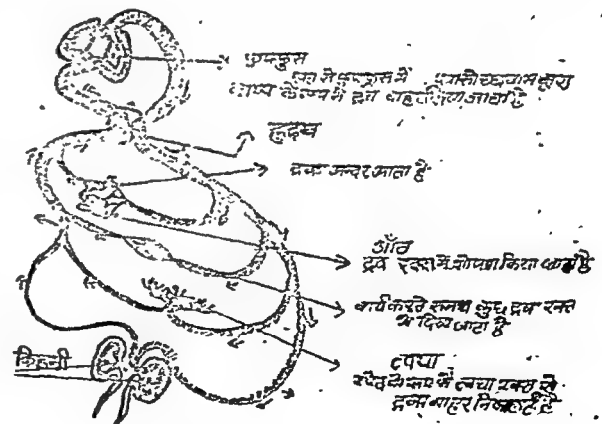 फुफ्फुस
रक्त से फुफ्फुस में श्वासोच्छवास द्वारा
वाष्प के रूप में द्रव बाहर लिया जाता है
हृदय
द्रव्य अन्दर आता है
आँत
द्रव रक्त में शोषण किया जाता है
कार्य करते समय कुछ द्रव रक्त
में दिया जाता है
त्वचा
स्वेद के रूप में त्वचा रक्त से
द्रव्य बाहर निकालते है
किडनी